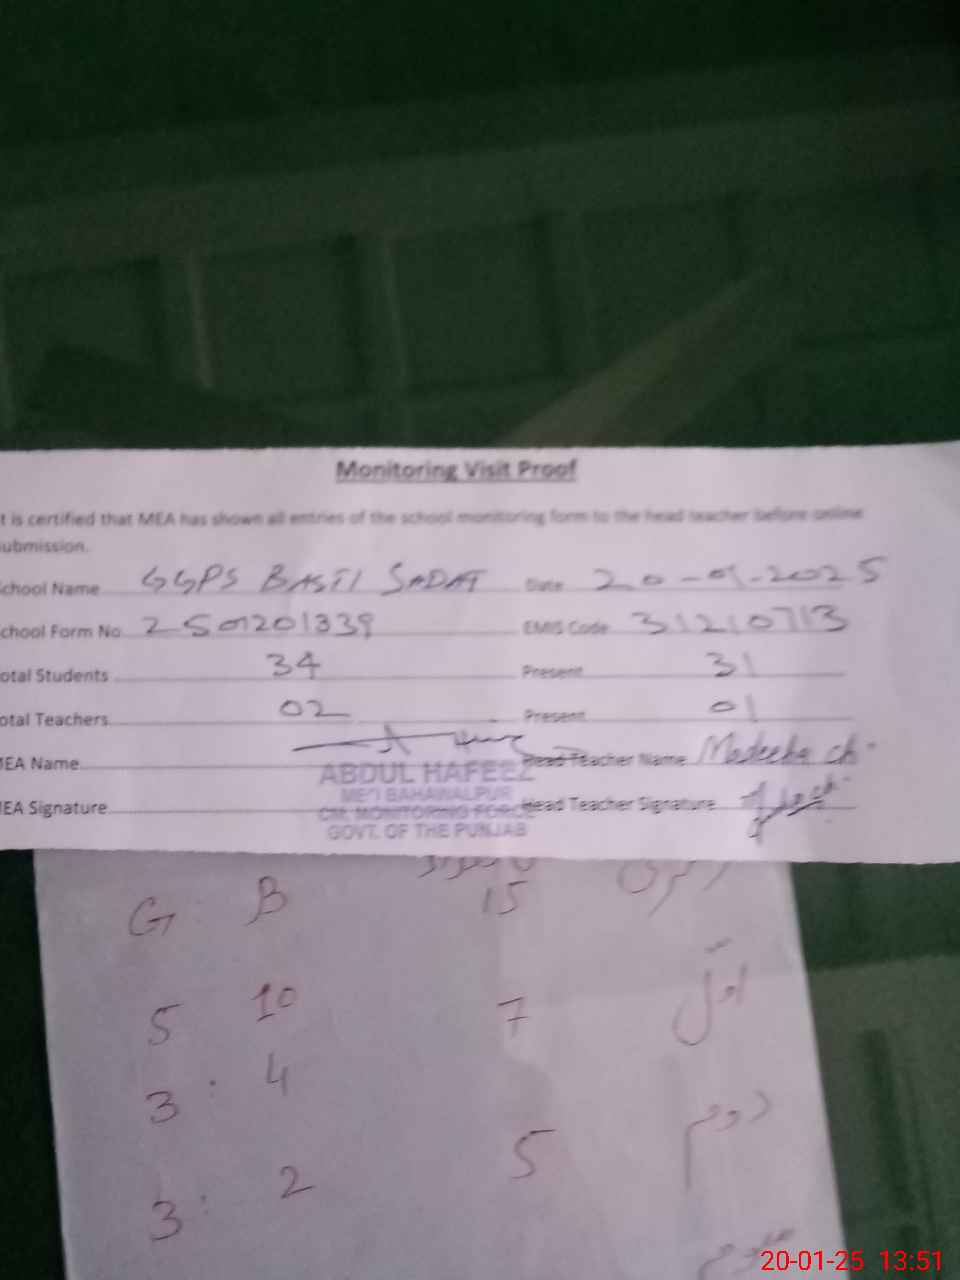 Monitoring Visit Proof
t is certified that MEA has shown all entries of the school monitoring form to the head teacher before online
ubmission.
chool Name GGPS BASTI SADAT Date 20-01-2025
chool Form No 2501201339 EMIS Code 31210713
otal Students 34 Present 31
otal Teachers 02 Present 01
MEA Name Head Teacher Name Madeeha ch
ABDUL HAFEEZ
MEA BAHAWALPUR
MEA Signature Head Teacher Signature
CM MONITORING FORCE
GOVT. OF THE PUNJAB
G B 15
5 10 7 اول
3 : 4
5 دوم
3 : 2
سوم
20-01-25 13:51